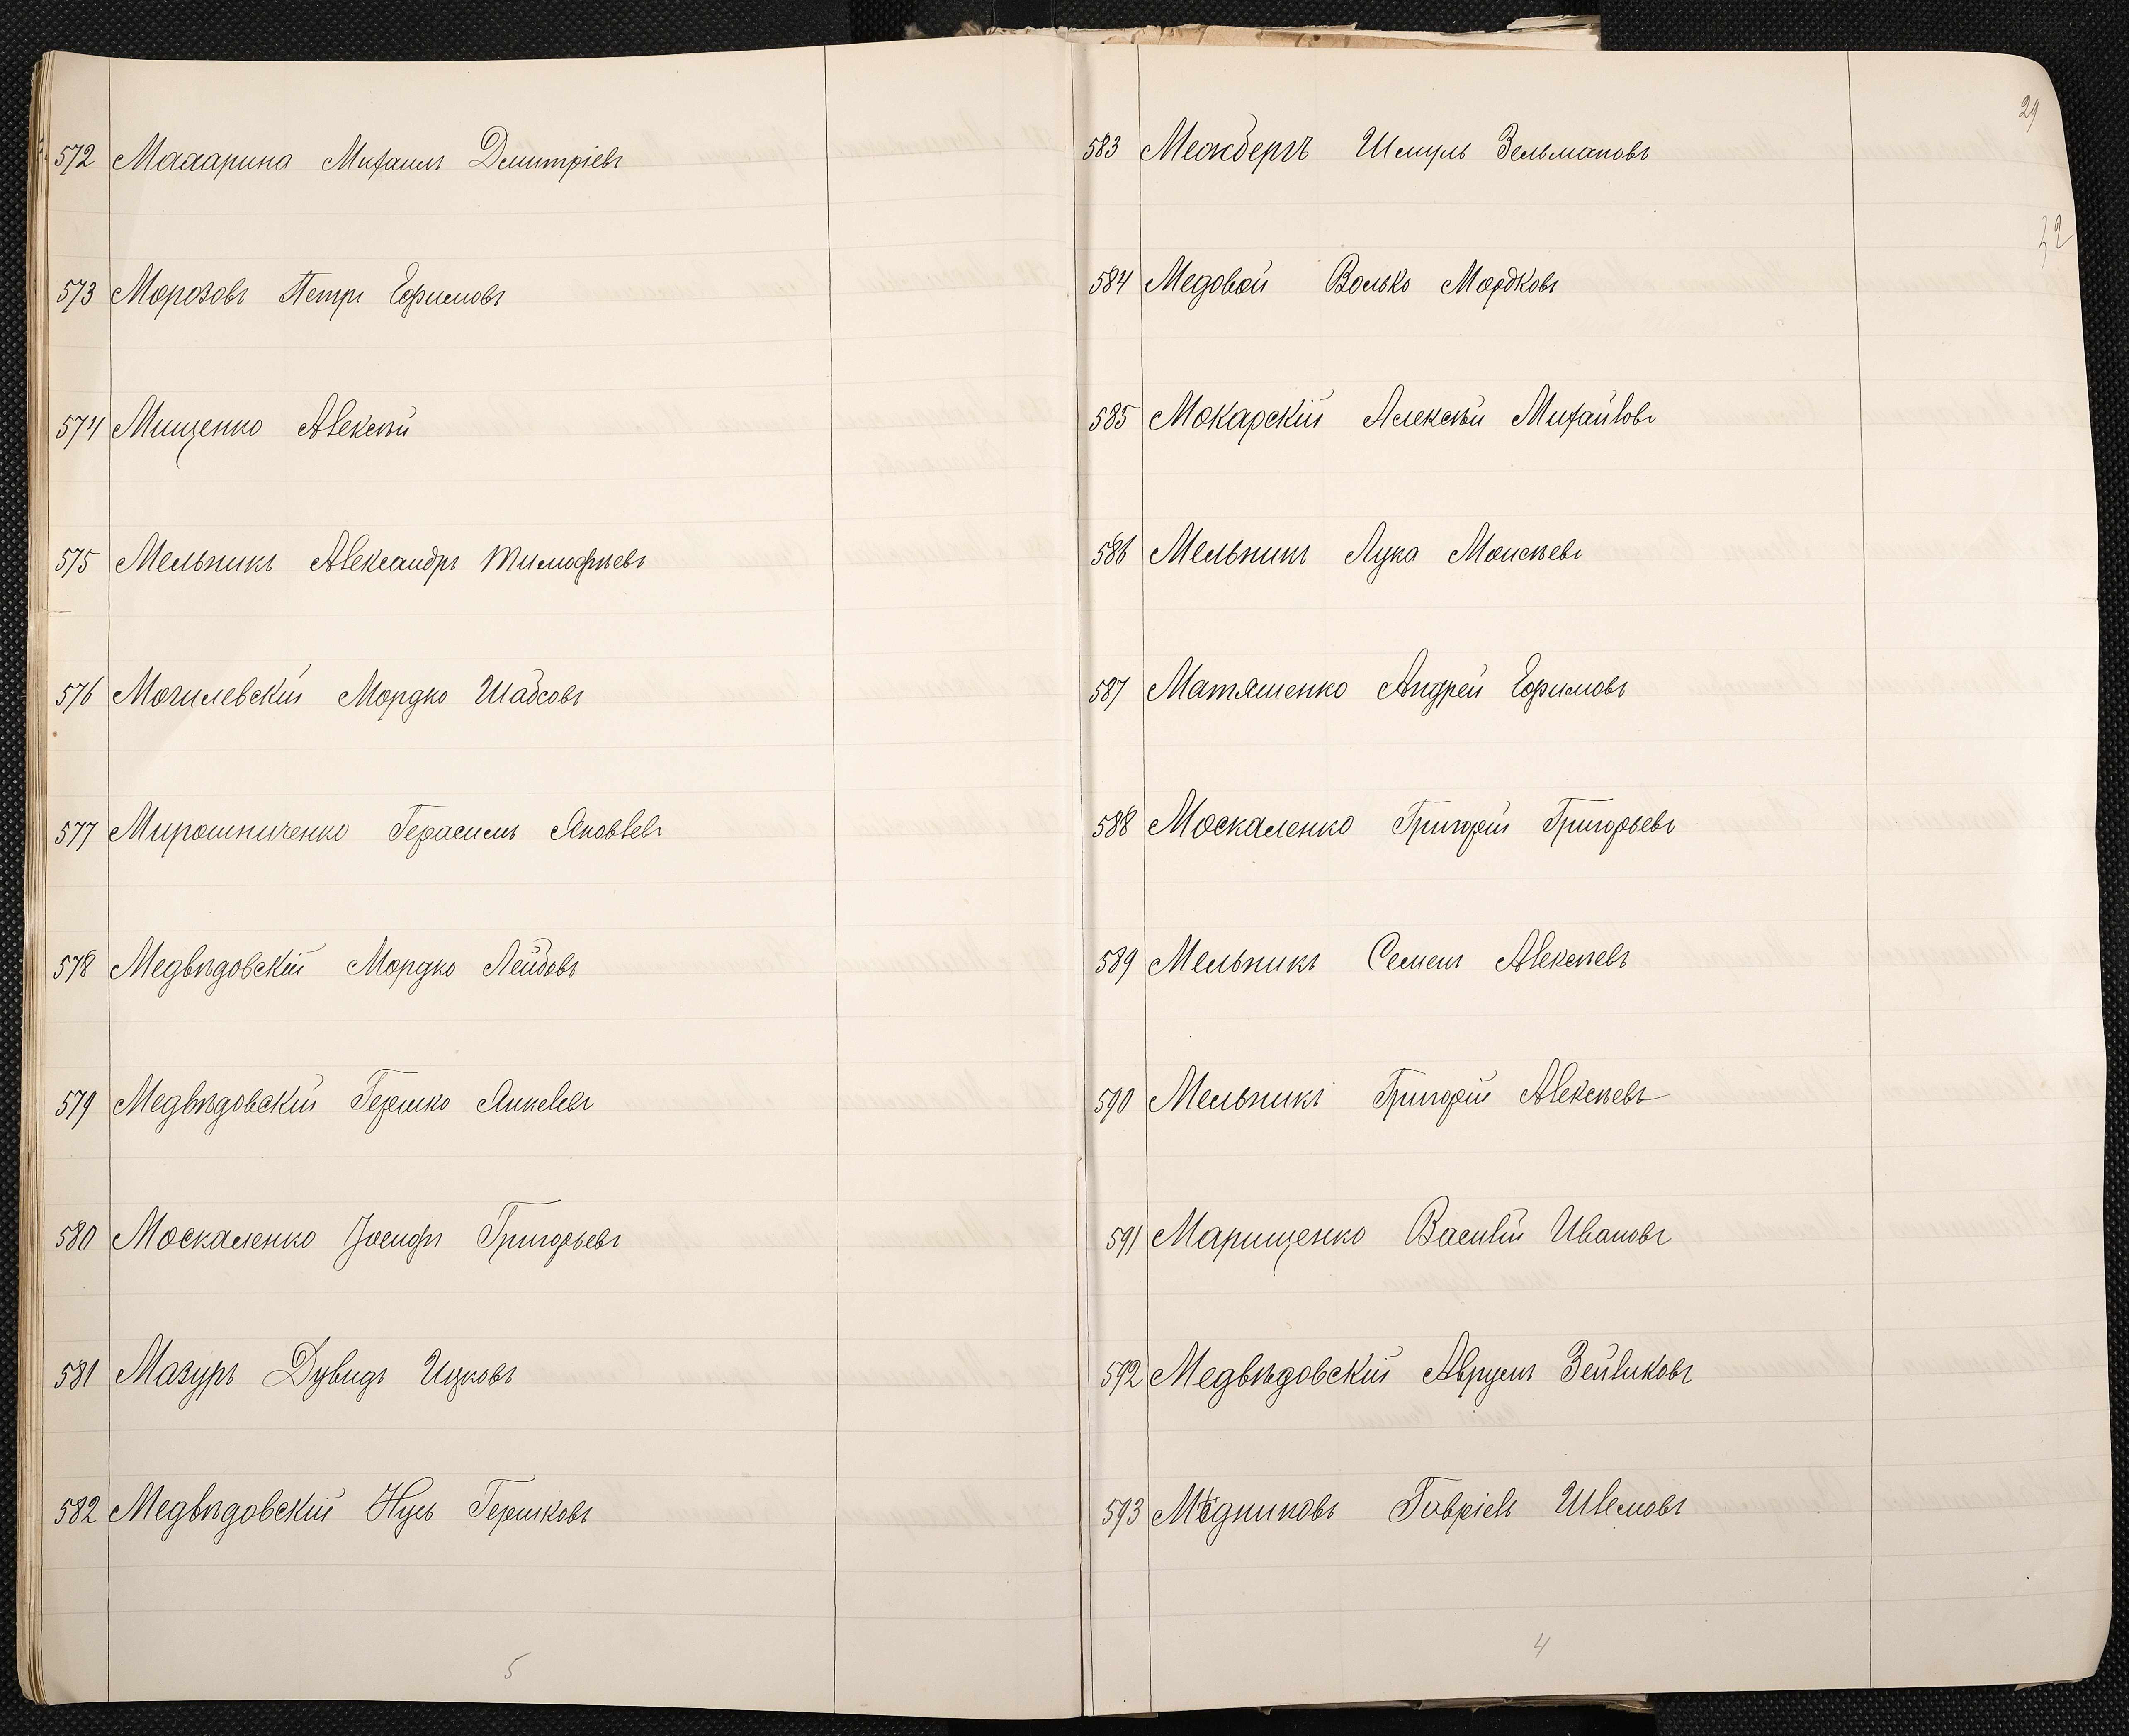 572 Махарина Михаилъ Дмитріевъ
573 Морозовъ Петръ Ефимовъ
574 Мищенко Алексѣй
575 Мельникъ Александръ Тимофѣевъ
576 Могилевскій Мордко Шабсовъ
577 Мирошниченко Герасимъ Яковлевъ
578 Медвѣдовскій Мордко Лейбовъ
579 Медвѣдовскій Гершко Янкелевъ
580 Москаленко Іосифъ Григорьевъ
581 Мазуръ Дувидъ Ицковъ
582 Медвѣдовскій Нусь Гершковъ
5
29
32
583 Межбергъ Шмуль Зельмановъ
584 Медовой Волько Мордковъ
585 Мокарскій Алексѣй Михайловъ
586 Мельникъ Лука Моисѣевъ
587 Матяшенко Андрей Ефимовъ
588 Москаленко Григорій Григорьевъ
589 Мельникъ Семенъ Алексѣевъ
590 Мельникъ Григорій Алексѣевъ
591 Марищенко Василій Ивановъ
592 Медвѣдовскій Аврумъ Зейликовъ
593 Мѣдниковъ Гавріелъ Шлемовъ
4